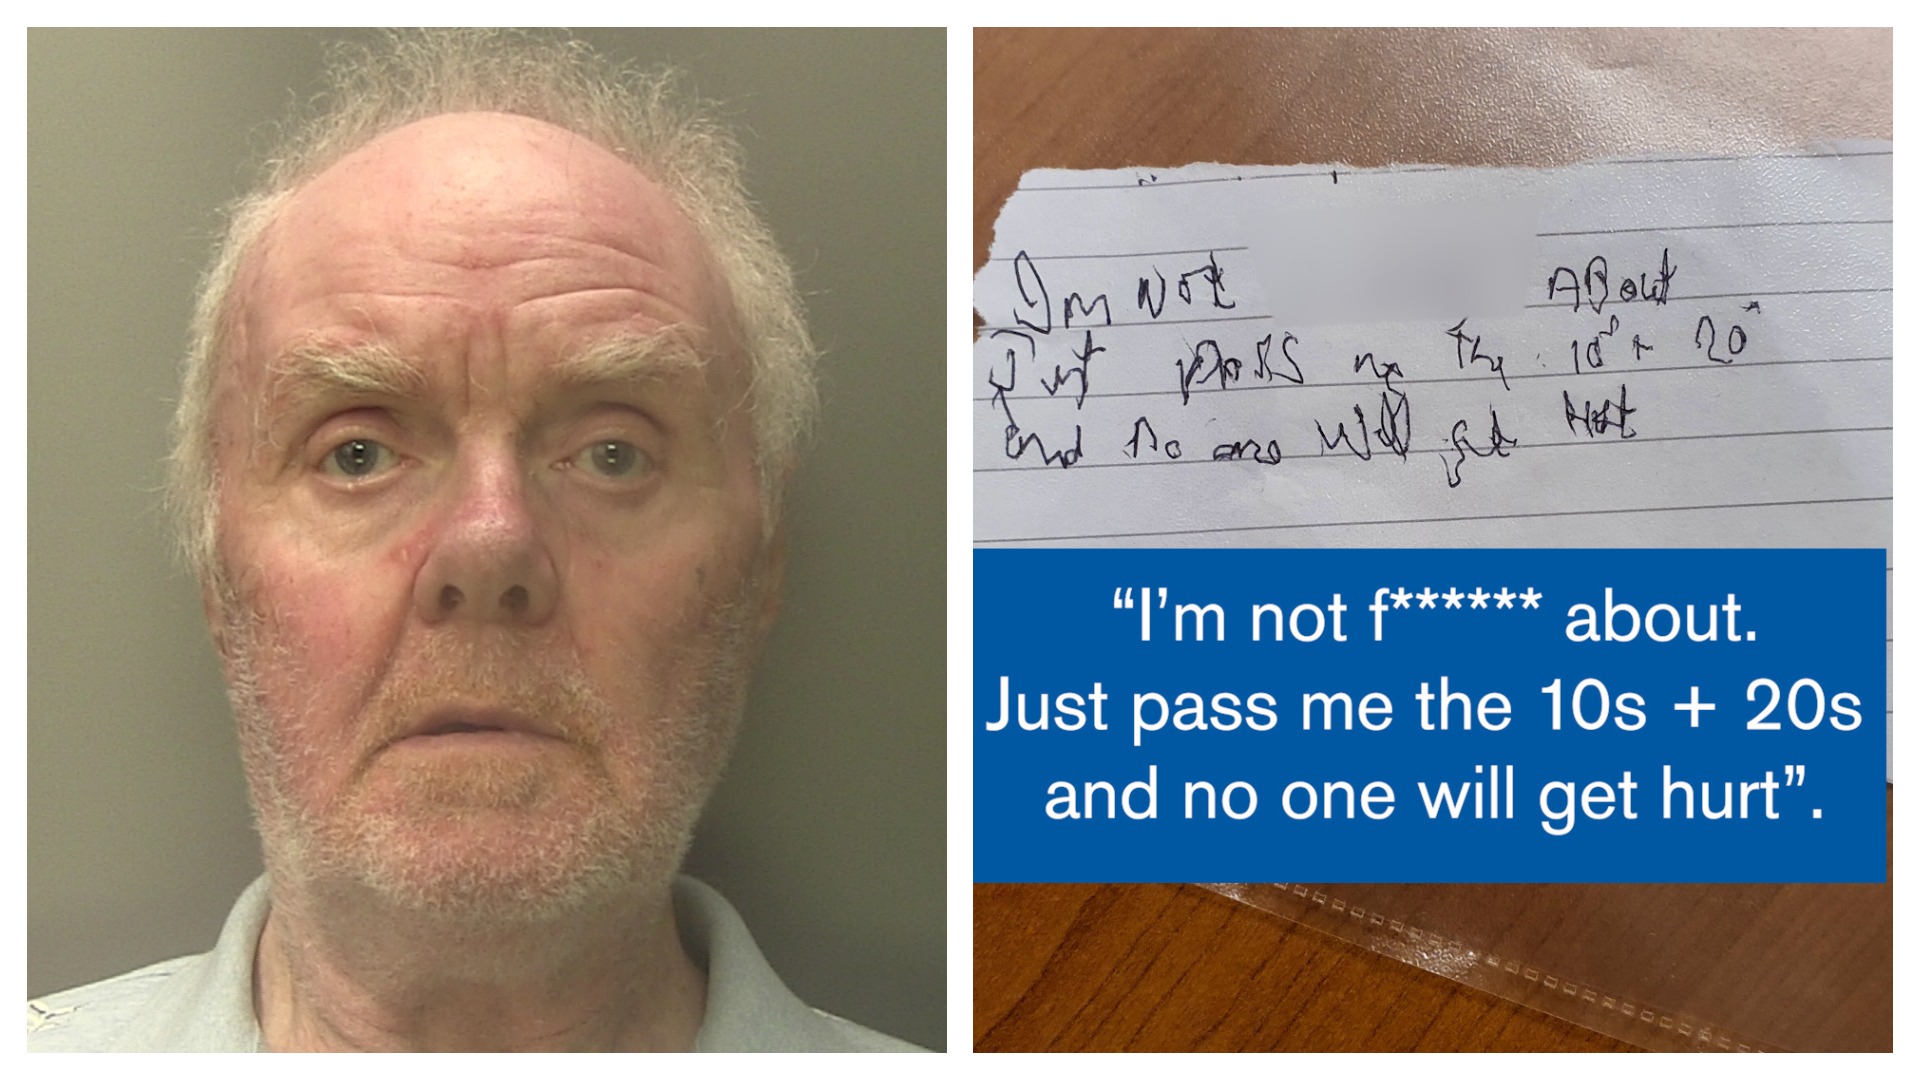 Im Not ABout
Just pass me The 10s + 20s
and no one will get Hurt
“I’m not f****** about.
Just pass me the 10s + 20s
and no one will get hurt”.